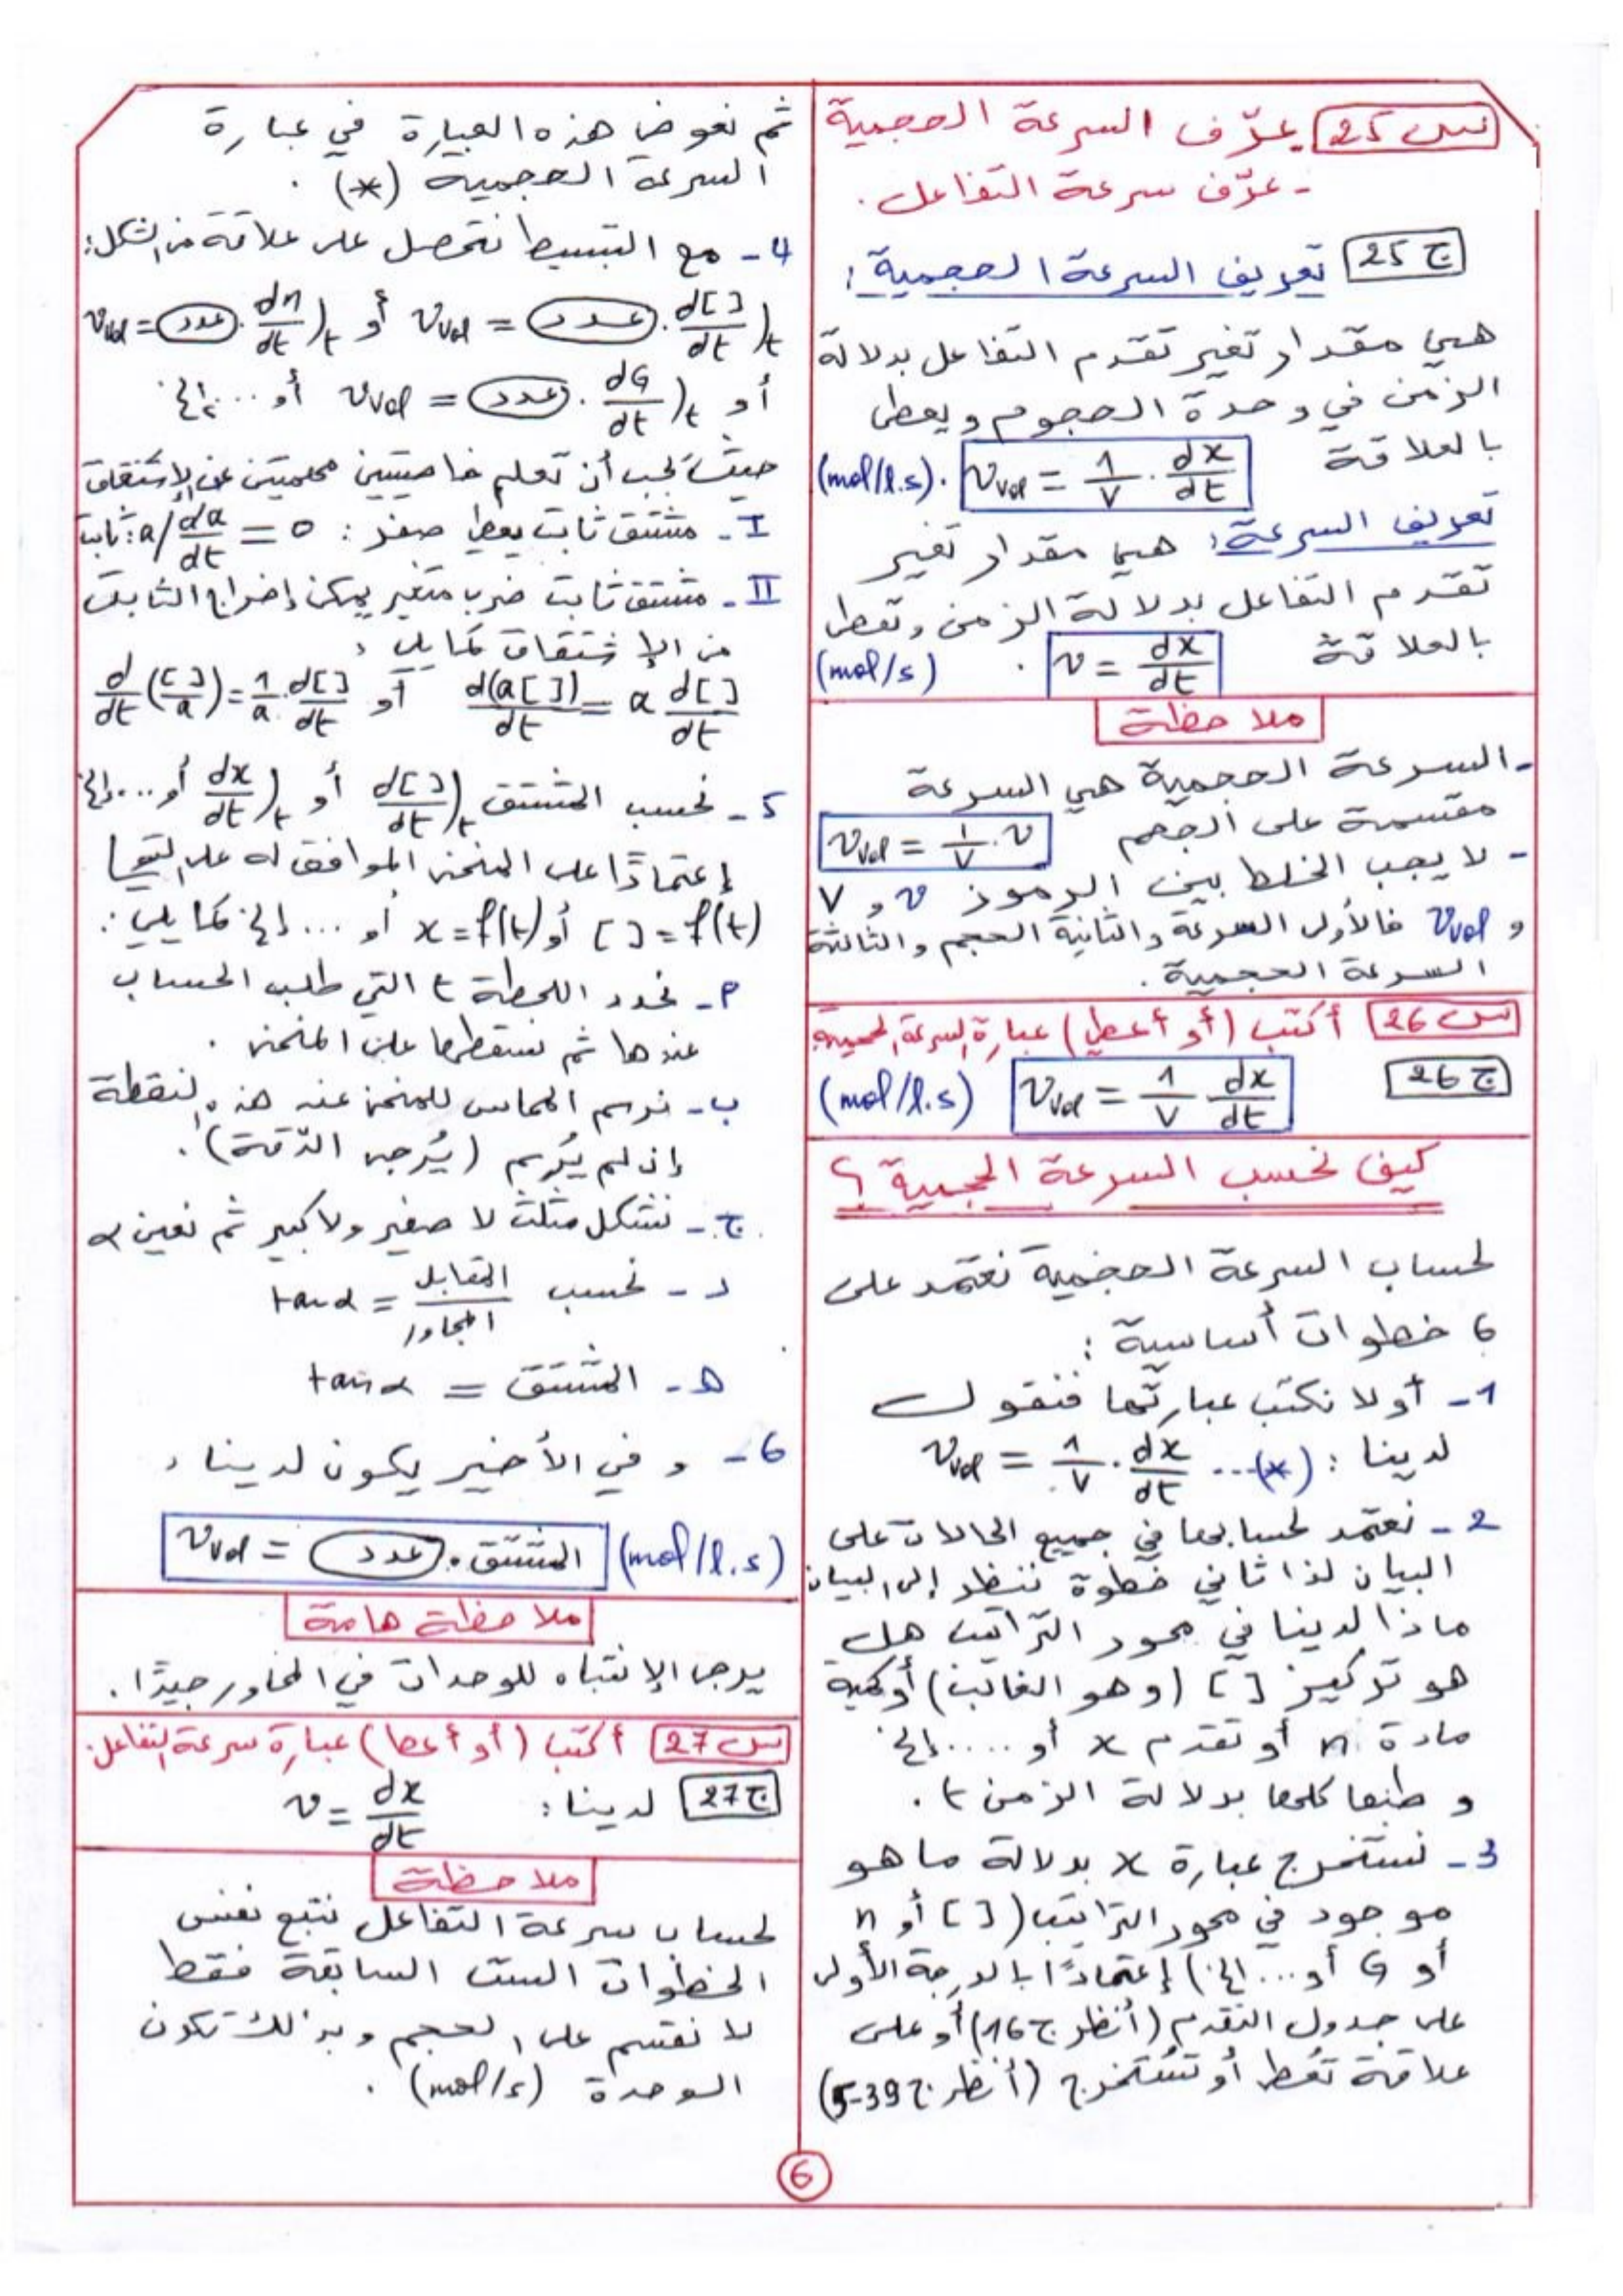 س 25 - عرّف السرعة الحجمية
- عرّف سرعة التفاعل.
ج 25 تعريف السرعة الحجمية:
هي مقدار تغير تقدم التفاعل بدلالة
الزمن في وحدة الحجوم ويعطى
بالعلاقة v_vol = 1/V . dx/dt . (mol/l.s)
تعريف السرعة: هي مقدار تغير
تقدم التفاعل بدلالة الزمن وتعطى
بالعلاقة v = dx/dt . (mol/s)
ملاحظة
- السرعة الحجمية هي السرعة
مقسمة على الحجم v_vol = 1/V . v
- لا يجب الخلط بين الرموز v و V
و v_vol فالأولى السرعة والثانية الحجم والثالثة
السرعة الحجمية.
س 26 أكتب (أو أعطي) عبارة السرعة الحجمية
ج 26 v_vol = 1/V dx/dt (mol/l.s)
كيف نحسب السرعة الحجمية؟
لحساب السرعة الحجمية نعتمد على
6 خطوات أساسية:
1- أولا نكتب عبارتها فنقول
لدينا: (*)... v_vol = 1/V . dx/dt
2- نعتمد لحسابها في جميع الحالات على
البيان لذا ثاني خطوة ننظر إلى البيان
ماذا لدينا في محور التراتيب هل
هو تركيز [ ] (وهو الغالب) أو كمية
مادة n أو تقدم x أو .... إلخ
و طبعا كلها بدلالة الزمن t.
3- نستخرج عبارة x بدلالة ما هو
موجود في محور التراتيب ([ ] أو n
أو G أو... إلخ) إعتمادًا بالدرجة الأولى
على جدول التقدم (أنظر ج 16) أو على
علاقة تعطى أو تستخرج (أنظر ج 39-5)
ثم نعوض هذه العبارة في عبارة
السرعة الحجمية (*) .
4- مع التبسيط نتحصل على علاقة من الشكل:
v_vol = عدد . d[ ]/dt)t أو v_vol = عدد . dn/dt)t
أو v_vol = عدد . dG/dt)t أو ... إلخ
حيث يجب أن تعلم خاصيتين مهمتين عن الإشتقاق
I- مشتق ثابت يعطي صفر: da/dt = 0 / a: ثابت
II- مشتق ثابت ضرب متغير يمكن إخراج الثابت
من الإشتقاق كما يلي:
d(a[ ])/dt = a d[ ]/dt أو d/dt([ ]/a) = 1/a . d[ ]/dt
5- نحسب المشتق d[ ]/dt)t أو dx/dt)t أو ... إلخ
إعتمادًا على المنحنى الموافق له على
[ ] = f(t) أو x = f(t) أو ... إلخ كما يلي:
أ- نحدد اللحظة t التي طلب الحساب
عندها ثم نسقطها على المنحنى .
ب- نرسم المماس للمنحنى عند هذه النقطة
إن لم يُرسم (يُرجى الدّقة).
ج- نشكل مثلث لا صغير ولا كبير ثم نعين α
د- نحسب tanα = المقابل/المجاور
ه- المشتق = tanα
6- و في الأخير يكون لدينا:
v_vol = عدد . المشتق (mol/l.s)
ملاحظة هامة
يرجى الإنتباه للوحدات في المحاور جيدًا.
س 27 أكتب (أو أعط) عبارة سرعة التفاعل.
ج 27 لدينا: v = dx/dt
ملاحظة
لحساب سرعة التفاعل نتبع نفس
الخطوات الست السابقة فقط
لا نقسم على الحجم وبذلك تكون
الوحدة (mol/s) .
6